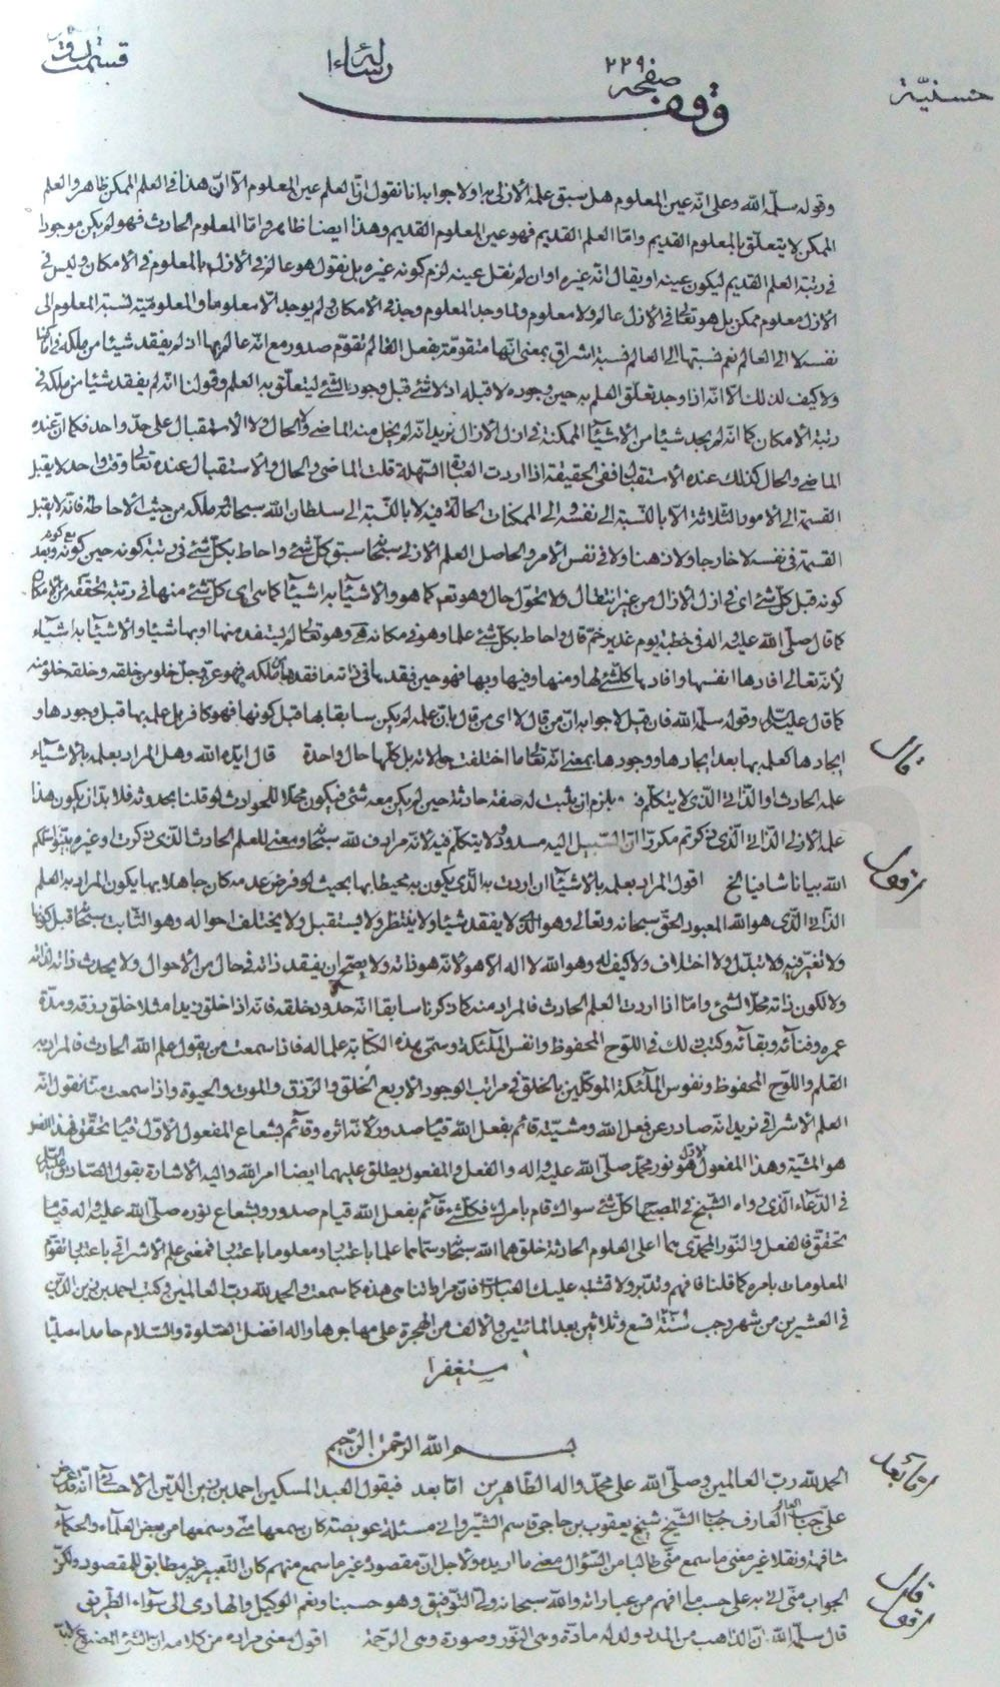 صفحه ٢٢٩
رسائل
حسنیّة
وقف
وقوله سلّمه الله وعلى انّه عين المعلوم هل سبق علمه الأزلى به اولا جوابه انا نقول انّ العلم عين المعلوم الّا انّ هذا فى العلم الممكن ظاهر والعلم
الممكن لا يتعلّق بالمعلوم القديم وامّا العلم القديم فهو عين المعلوم القديم وهذا ايضا ظاهر وامّا المعلوم الحادث فهو لم يكن موجودا
فى رتبة العلم القديم ليكون عينه او يقال انّه غيره او ان لم نقل عينه لزم كونه غيره بل نقول هو عالم فى الأزل بالمعلوم فى الأمكان وليس فى
الأزل معلوم ممكن بل هو تعالى فى الأزل عالم ولا معلوم ولمّا وجد المعلوم وجد فى الأمكان ولم يوجد الّا معلوما والمعلوميّة لنسبة المعلوم الى
نفسه لا الى العالم نعم نسبتها الى العالم نسبة اشراق بمعنى انّها متقوّمة بفعل العالم تقوّم صدور مع انّه عالم بها اذ لم يفقد شيئا من ملكه فى
ولا كيف لذلك الّا انّه اذا وجد تعلّق العلم به حين وجوده لا قبله اذ لا شئ قبل وجود الشئ ليتعلّق به العلم وقولنا انّه لم يفقد شيئا من ملكه فى
رتبة الأمكان كما انّه لم يجد شيئا من الأشياء الممكنة فى ازل الأزال نريد انّه لم يخل منه الماضى ولا الحال ولا الأستقبال على حدّ واحد فكما انّ عنده
الماضى والحال كذلك عنده الأستقبال ففى الحقيقة اذا اردت العبارة السّهلة قلت الماضى والحال والأستقبال عنده تعالى وقت واحد لا يقبل
القسمة الى الأمور الثّلاثة الّا بالنّسبة الى نفسه والى الممكنات الحالّة فيه لا بالنّسبة الى سلطان الله سبحانه وملكه من حيث الأحاطة فانّه لا يقبل
القسمة فى نفسه لا خارجا ولا ذهنا ولا فى نفس الأمر والحاصل العلم الأزلى سبحانه سبق كلّ شئ واحاط بكلّ شئ فى رتبة كونه حين كونه وبعد
كونه قبل كلّ شئ اى فى ازل الأزال من غير انتقال ولا تحوّل حال وهو تعالى كما هو والأشياء به اشياء كما هى اى كلّ شئ منها فى رتبة تحقّقه من
كما قال صلّى الله عليه واله فى خطبة يوم غدير خمّ قال واحاط بكلّ شئ علما وهو فى مكانه وهو تعالى لم يستفد منها او بها شيئا والأشياء به اشياء
لأنّه تعالى افادها انفسها وافاد بها كلّ شئ لها ومنها وفيها وبها فهو حين فقدها فى ذاته ما فقدها فى ملكه فهو عزّ وجلّ خلو من خلقه وخلقه خلو منه
كما قال عليه السلام وقوله سلّمه الله فان قيل لا جوابه انّ من قال لا اى من قال بانّ علمه لم يكن سابقا بها قبل كونها فهو كافر بل علمه بها قبل وجودها و
ايجادها كعلمه بها بعد ايجادها ووجودها بمعنى انّه تعالى ما اختلفت حالاته بل كلّها حال واحدة قال ايّده الله وهل المراد بعلمه بالأشياء
علمه الحادث او الذّاتى الّذى لا يتكلّم فيه يلزم ان يثبت له صفة حادثة حين لم يكن معه شئ فيكون محلّا للحوادث لو قلنا بحدوثه فلا بدّ ان يكون هذا
علمه الأزلى الذّاتى الّذى ذكرتم مكررا انّ السّبيل اليه مسدود ولا يتكلّم فيه لأنّه مرادف لله سبحانه وما معنى العلم الحادث الّذى ذكرت او غيره
الله بيانا شافيا الخ اقول المراد بعلمه بالأشياء ان اردت به الّذى يكون به محيطا بها بحيث لو فرض عدمه كان جاهلا بها يكون المراد به العلم
الذّاتى الّذى هو الله المعبود الحقّ سبحانه وتعالى وهو الذى لا يفقد شيئا ولا ينتظر ولا يستقبل ولا يختلف احواله وهو الثّابت سبحانه قبل كونها
ولا تغيّر فيه ولا تبدّل ولا اختلاف ولا كيف له وهو الله لا اله الّا هو لأنّه هو ذاته ولا يصحّ ان يفقد ذاته فى حال من الأحوال ولا يحدث ذاته لذاته
ولا تكون ذاته محلّا لشئ وامّا اذا اردت العلم الحادث فالمراد منه كما ذكرنا سابقا انّه حدود خلقه فانّه اذا خلق زيدا مثلا خلق رزقه ومدّة
عمره وفنائه وبقائه وكتب ذلك فى اللّوح المحفوظ وانفس الملائكة وسمّى هذه الكتابة علما له فاذا سمعت من يقول علم الله الحادث فالمراد به
القلم واللّوح المحفوظ ونفوس الملائكة الموكّلين بالخلق فى مراتب الوجود الأربع الخلق والرّزق والموت والحيوة واذا سمعت منّا نقول انّه
العلم الأشراقى نريد انّه صادر عن فعل الله ومشيّته قائم بفعل الله قيام صدور لأنّه اثره وقائم بشعاع المفعول الأوّل قيام تحقّق فهذا الفعل
هو المشيّة وهذا المفعول الاول هو نور محمّد صلّى الله عليه واله والفعل والمفعول يطلق عليهما ايضا امر الله واليه الأشارة بقول الصّادق عليه السلام
فى الدّعاء الّذى رواه الشّيخ فى المصباح كلّ شئ سواك قام بامرك فكلّ شئ قائم بفعل الله قيام صدور وبشعاع نوره صلّى الله عليه واله قيام
تحقّق فالفعل والنّور المحمّدى هما اعلى العلوم الحادثة خلقهما الله سبحانه وسمّاهما علما باعتبار ومعلوما باعتبار فمعنى علم الأشراقى باعتبار تقوّم
المعلومات بامره كما قلنا فافهم وتدبّر ولا تشتبه عليك العبارات فانّ مراداتنا هى هذه كما سمعت والحمد لله ربّ العالمين وكتب احمد بن زين الدّين
فى العشرين من شهر رجب سنة ١٢٣٩ تسع وثلاثين بعد المائتين والألف من الهجرة على مهاجرها واله افضل الصّلوة والسّلام حامدا مصلّيا
مستغفرا
بسم الله الرّحمن الرّحيم
الحمد لله ربّ العالمين وصلّى الله على محمّد واله الطّاهرين امّا بعد فيقول العبد المسكين احمد بن زين الدّين الأحسائى انّه قد عرض
علىّ جناب العارف جناب الشّيخ شيخ يعقوب بن حاجى قاسم الشّيروانى مسئلة عويصة كان سمعها منّى وسمعها من بعض العلماء والحكماء
مشافهة ونقلا غير معنى ما سمع منّى طالبا من السّؤال معنى ما اريده ولأجل انّ مقصوده غير ما سمع منهم كان التّعبير غير مطابق للمقصود ولكن
الجواب منّى له به على حسب ما افهم من عباراته والله سبحانه ولىّ التّوفيق وهو حسبنا ونعم الوكيل والهادى الى سواء الطّريق
قال سلّمه الله انّ الذّاهب من المدد ولد له مادّة وهى النّور وصورة وهى الرّحمة اقول معنى مراده من كلامه انّ
قال
اقول
امّا بعد
قال
اقول